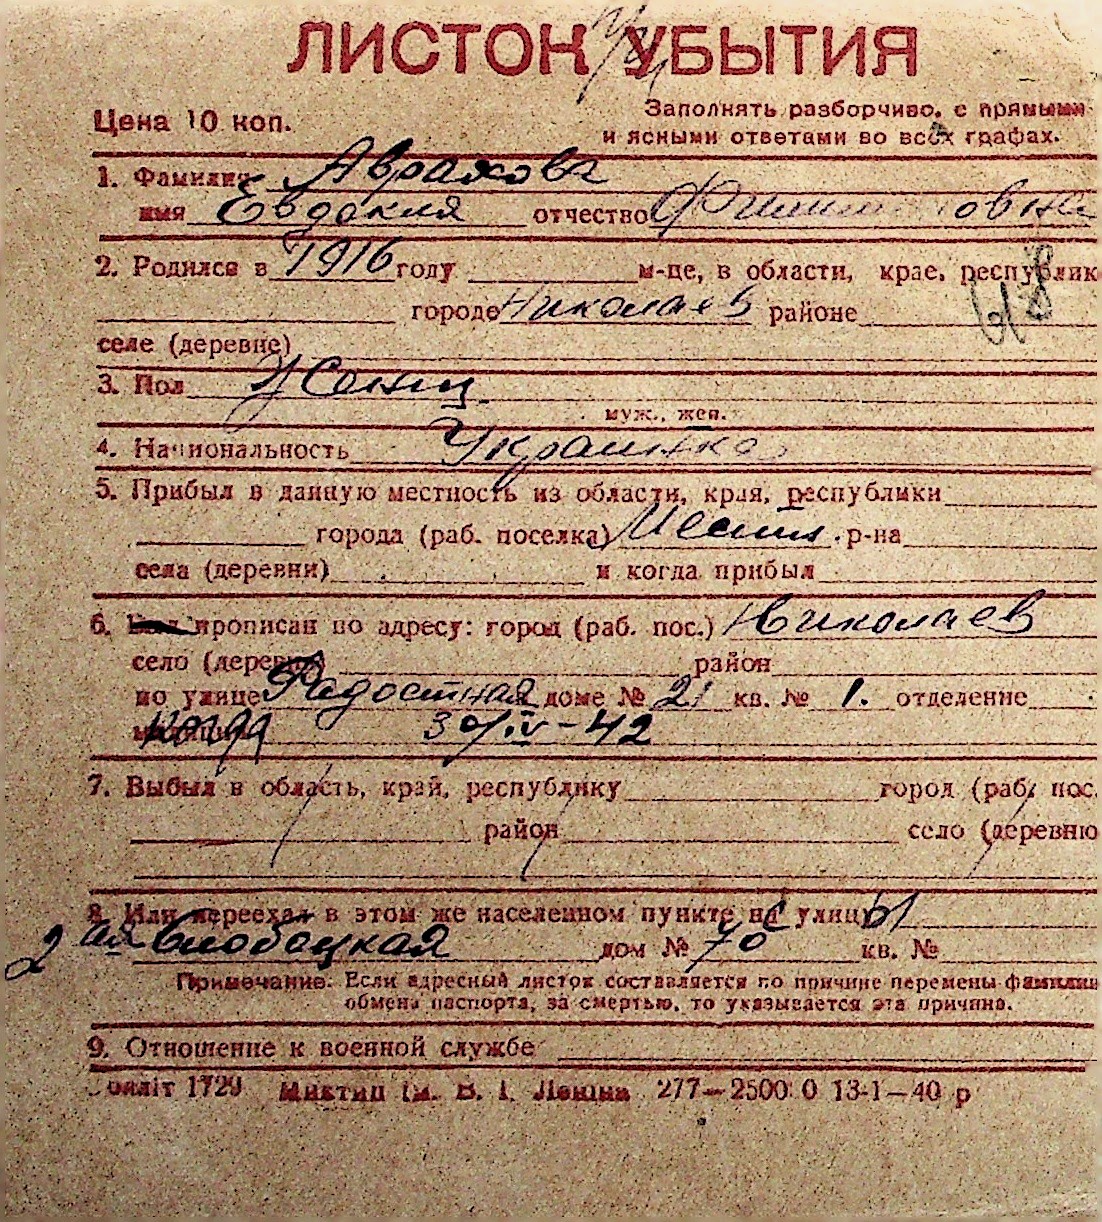 ЛИСТОК УБЫТИЯ
Цена 10 коп.
Заполнять разборчиво, с прямыми
и ясными ответами во всех графах.
1. Фамилия Аврахова
имя Евдокия отчество
2. Родился в 1916 году м-це, в области, крае, республик
городе Николаев районе
селе (деревне)
3. Пол Женщ.
муж., жен.
4. Национальность Украинка
5. Прибыл в данную местность из области, края, республики
города (раб. поселка) Местн. р-на
села (деревни) и когда прибыл
6. прописан по адресу: город (раб. пос.) Николаев
село (деревня) район
по улице Радостная доме № 21 кв. № 1. отделение
когда 30/IV-42
7. Выбыл в область, край, республику город (раб. пос.
район село (деревню
8. Или переехал в этом же населенном пункте с улицы
2ая Слободская дом № 70 кв. №
Примечание: Если адресный листок составляется по причине перемены фамилии
обмена паспорта, за смертью, то указывается эта причина.
9. Отношение к военной службе
1729 Миктип ім. В. І. Леніна 277—2500 0 13-1—40 р